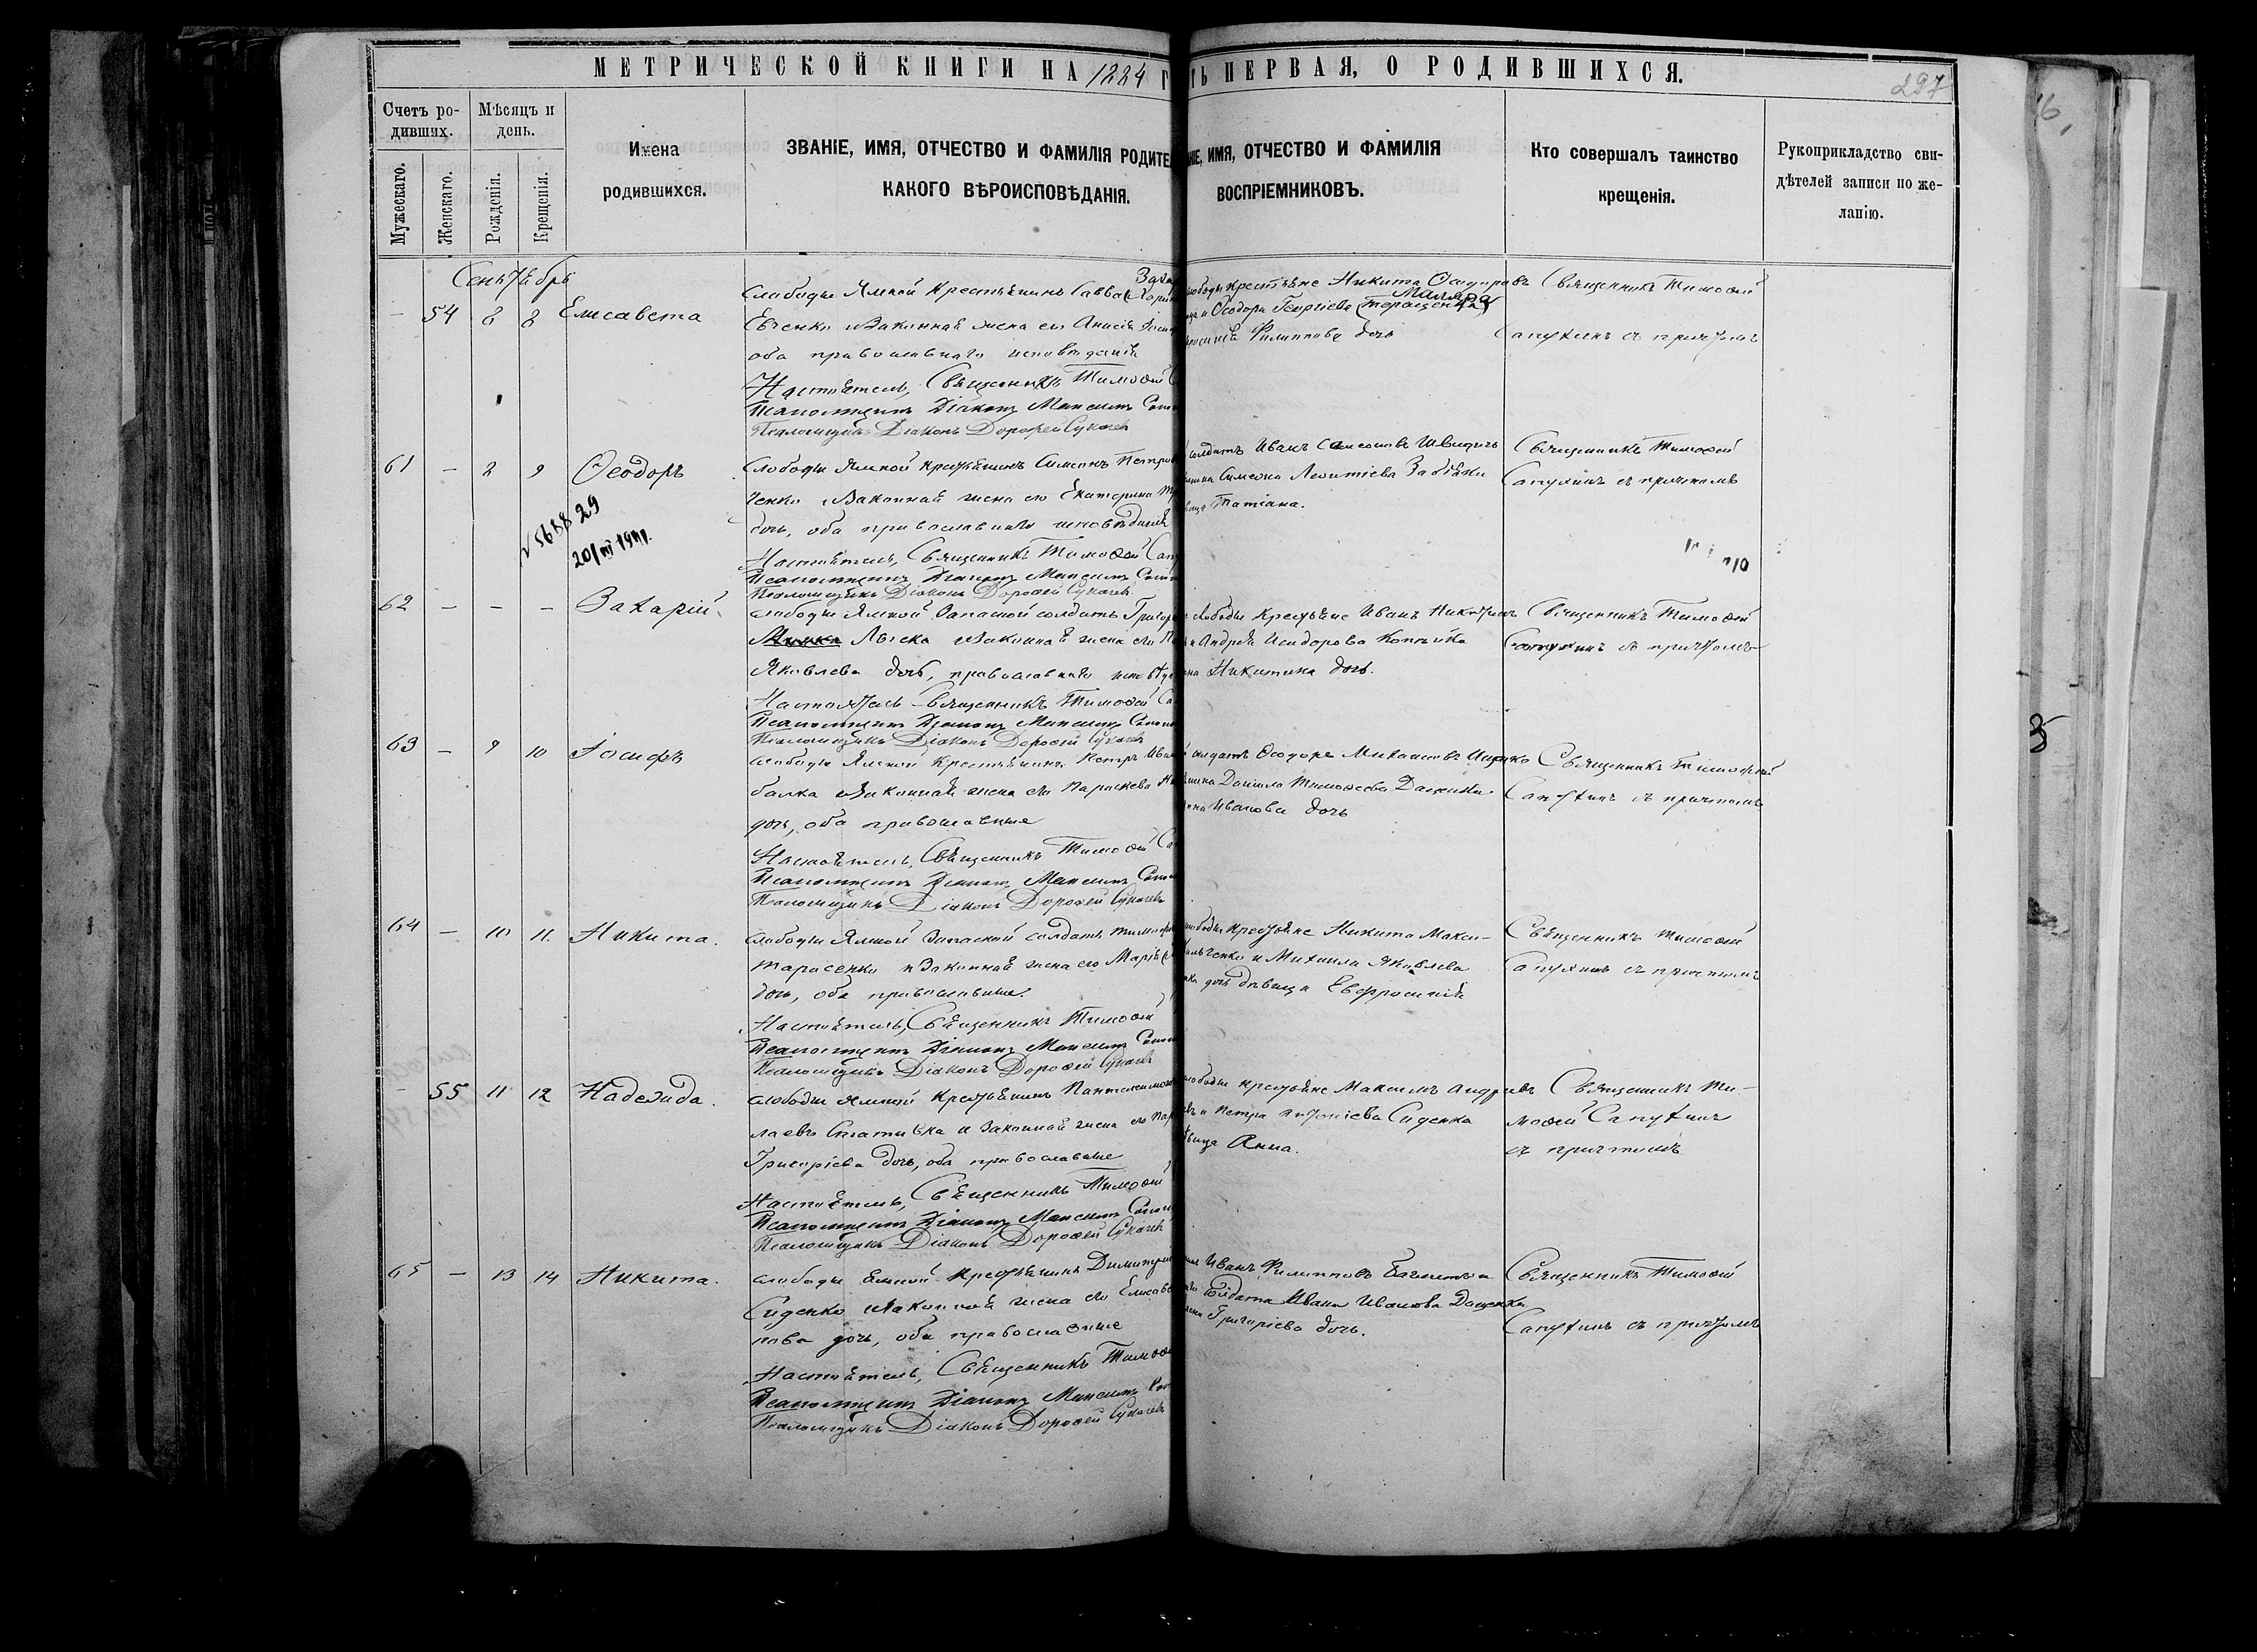 МЕТРИЧЕСКОЙ КНИГИ НА 1884 Г
ТЬ ПЕРВАЯ, О РОДИВШИХСЯ.
297
Счетъ ро-
дивших.
Мѣсяцъ и
день.
Мужескаго.
Женскаго.
Рожденія.
Крещенія.
Имена
родившихся.
ЗВАНІЕ, ИМЯ, ОТЧЕСТВО И ФАМИЛІЯ РОДИТЕ
КАКОГО ВѢРОИСПОВѢДАНІЯ.
НІЕ, ИМЯ, ОТЧЕСТВО И ФАМИЛІЯ
ВОСПРІЕМНИКОВЪ.
Кто совершалъ таинство
крещенія.
Рукоприкладство сви-
дѣтелей записи по же-
ланію.
Сентябрь
- 54 8 8 Елисавета
Слободы Ямной Крестьянинъ Савва
Евченко и Законная жена его Анисія
оба православнаго исповѣданія
Настоятель, Священникъ Тимофей
Псаломщикъ Діаконъ Максимъ
Псаломщикъ Діаконъ Дорофей Сукачев
слободы крестьяне Никита
и Феодора Георгіева Терещенка
Филиппова дочь
Священникъ Тимофей
Сапухинъ съ причтомъ
61 - 8 9 Феодоръ
№ 568829
20/III 1941.
Слободы Ямной крестьянинъ Симеонъ Петров
ченко и Законная жена его Екатерина
дочь, оба православнаго исповѣданія
Настоятель, Священникъ Тимофей Сап
Псаломщикъ Діаконъ Максимъ
Псаломщикъ Діаконъ Дорофей Сукачев
солдатъ Иванъ
Симеона Леонтіева
Татіана.
Священникъ Тимофей
Сапухинъ съ причтомъ
62 - - - Захарій
слободы Ямной Запасной солдатъ Григор
Лыска и Законная жена его
Яковлева дочь, православнаго исповѣд
Настоятель Священникъ Тимофей Са
Псаломщикъ Діаконъ Максимъ
Псаломщикъ Діаконъ Дорофей Сукачев
слободы Крестьяне Иванъ Никитинъ
и Андрея Исидорова Копѣйка
Никитина дочь.
Священникъ Тимофей
Сапухинъ съ причтомъ
63 - 9 10 Іосифъ
слободы Ямной Крестьянинъ Петръ Иван
балка и Законная жена его Параскева
дочь, оба православные
Настоятель, Священникъ Тимофей Са
Псаломщикъ Діаконъ Максимъ
Псаломщикъ Діаконъ Дорофей Сукачев
солдатъ Феодоръ Михаиловъ Ищенко
Даниила Тимофеева Даценка
Иванова дочь
Священникъ Тимофей
Сапухинъ съ причтомъ
64 - 10 11. Никита.
слободы Ямной Запасной солдатъ Тимофей
Тарасенко и Законная жена его Марія
дочь, оба православные.
Настоятель, Священникъ Тимофей
Псаломщикъ Діаконъ Максимъ
Псаломщикъ Діаконъ Дорофей Сукачев
слободы крестьяне Никита Макси-
и Михаила Яковлева
дочь дѣвица Евфросинія
Священникъ Тимофей
Сапухинъ съ причтомъ
- 55 11 12 Надежда.
слободы Ямной Крестьянинъ Пантелеимон
лаевъ и Законная жена его Пар
Григоріева дочь, оба православные
Настоятель, Священникъ Тимофей
Псаломщикъ Діаконъ Максимъ
Псаломщикъ Діаконъ Дорофей Сукачев
слободы крестьяне Максимъ Андреевъ
и Петра Антоніева Сиденка
дѣвица Анна.
Священникъ Ти-
мофей Сапухинъ
съ причтомъ
65 - 13 14 Никита.
слободы Ямной Крестьянинъ Димитрій
Сиденко и Законная жена его Елисаве
пова дочь, оба православные
Настоятель, Священникъ Тимофей
Псаломщикъ Діаконъ Максимъ
Псаломщикъ Діаконъ Дорофей Сукачев
Иванъ Филипповъ
солдата Ивана Иванова Даценка
Григоріева дочь.
Священникъ Тимофей
Сапухинъ съ причтомъ